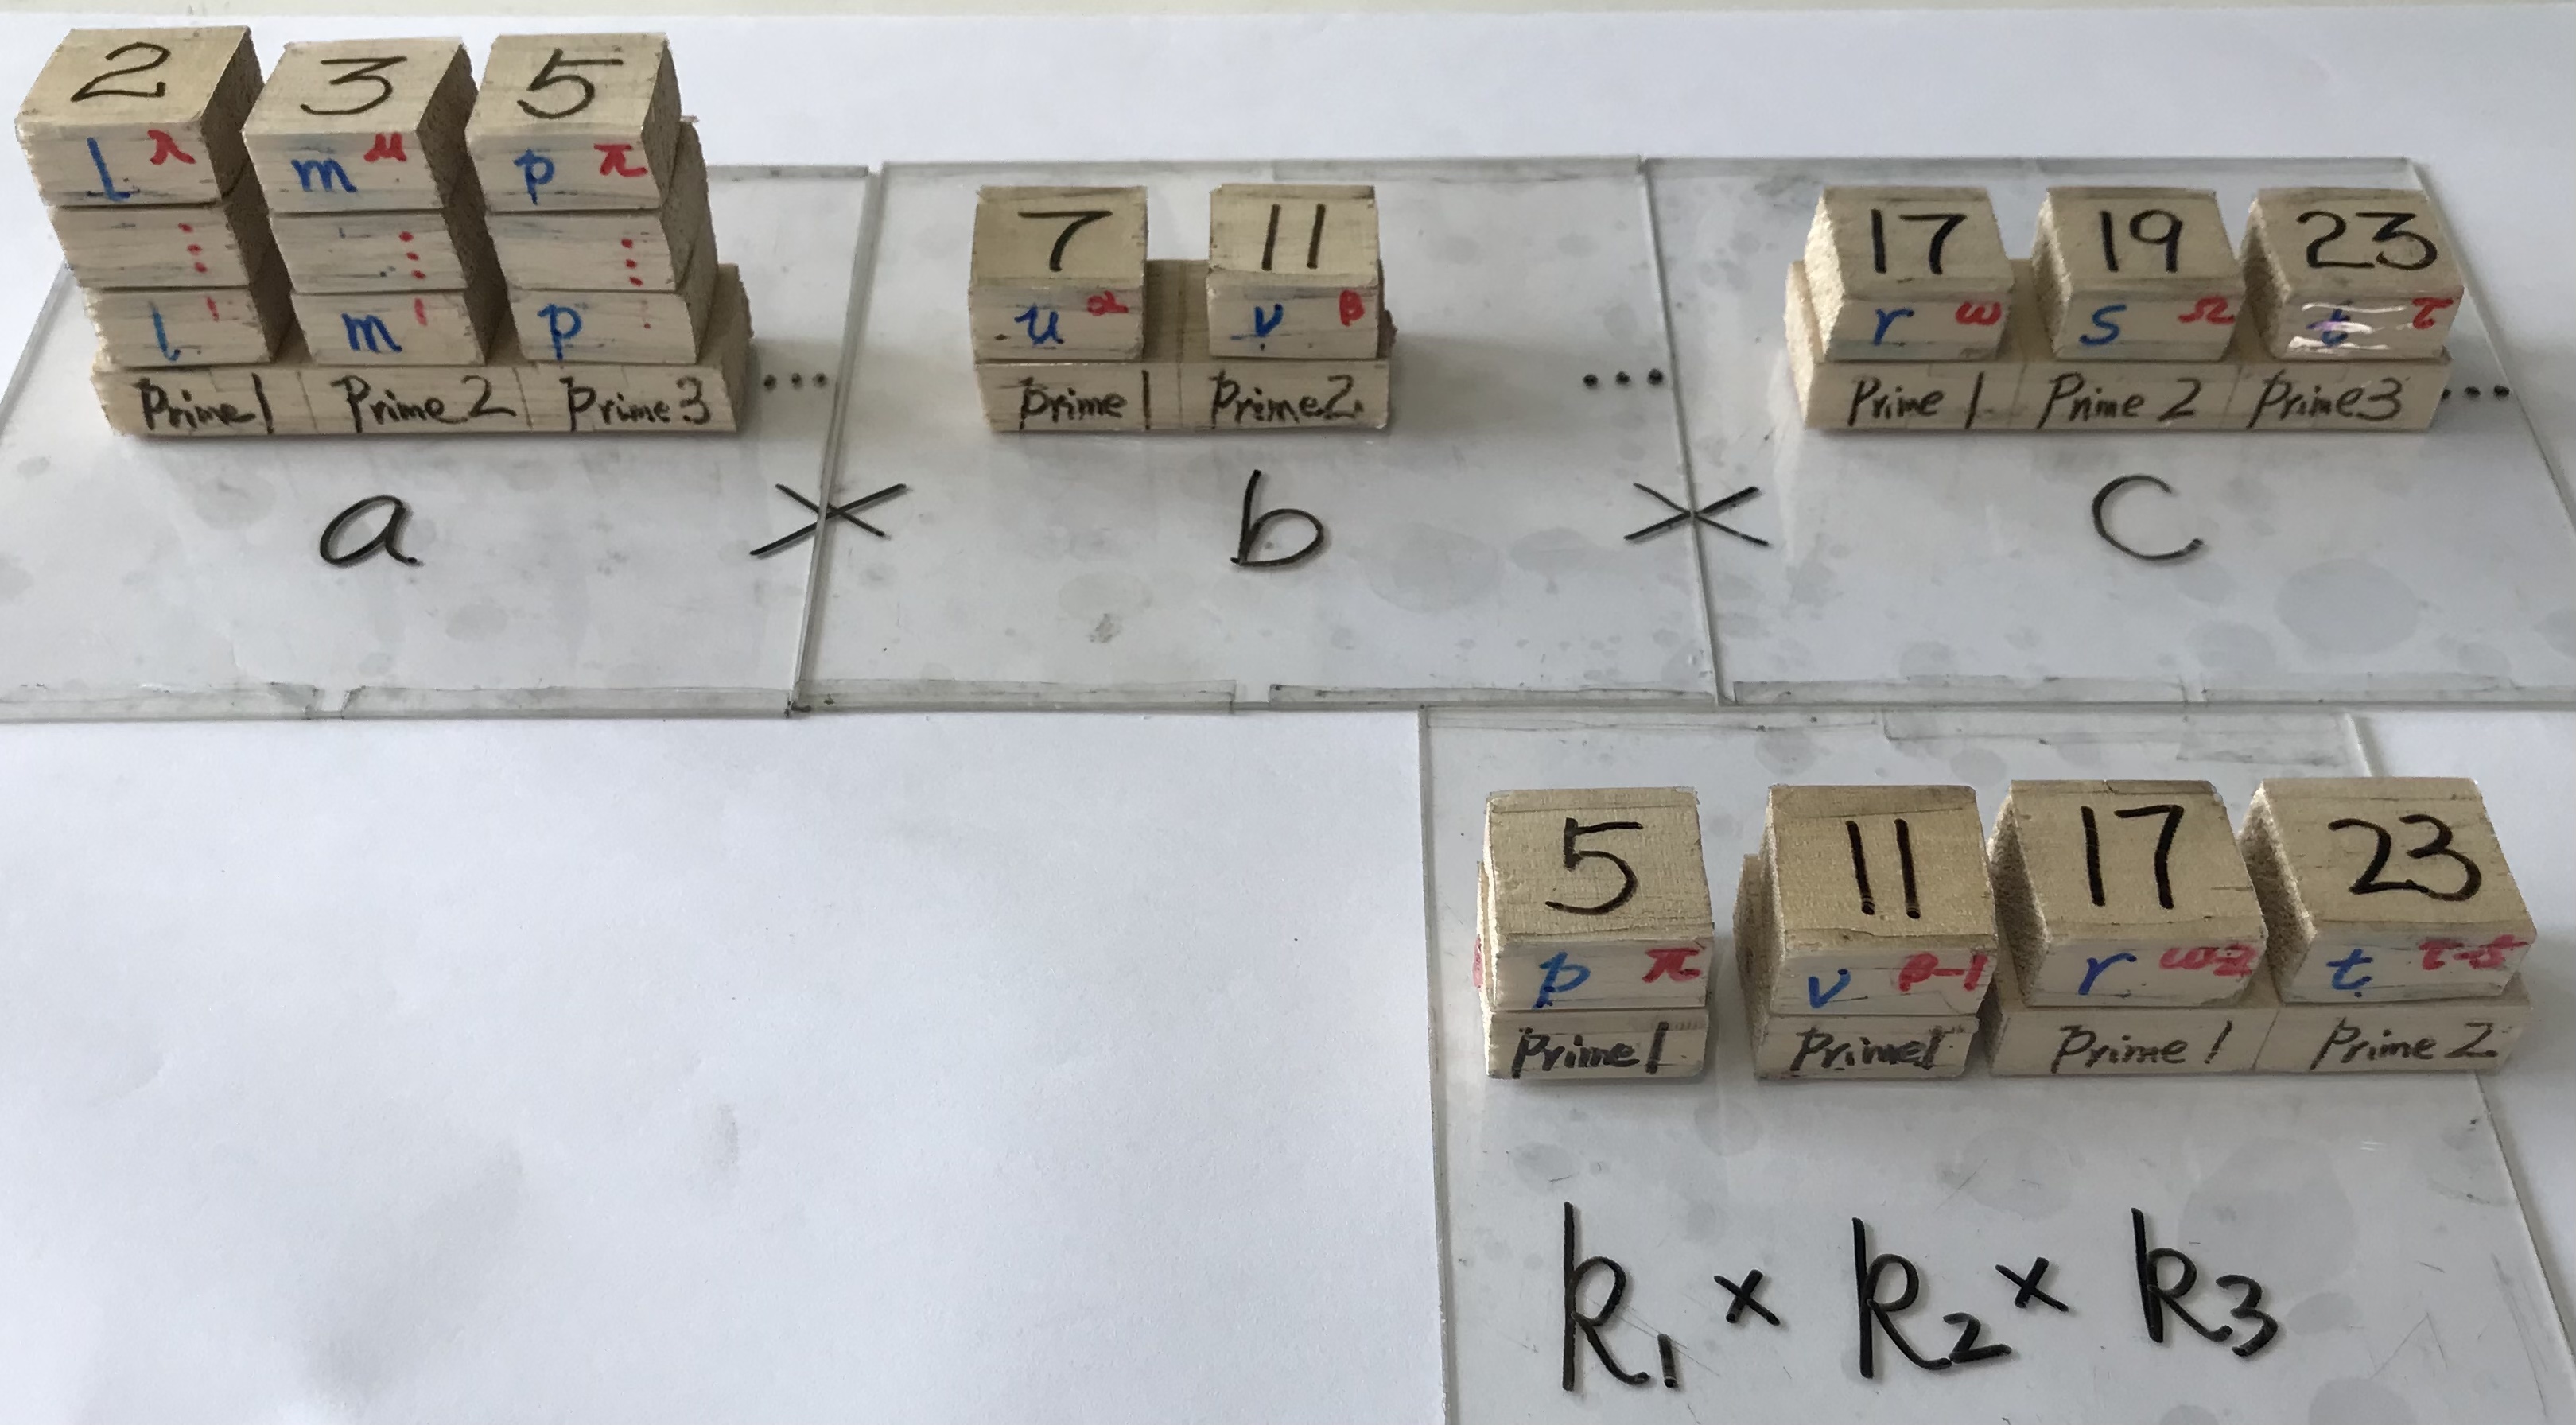 2 3 5
l λ m μ p π
⋮ ⋮ ⋮
l 1 m 1 p
Prime 1 Prime 2 Prime 3 ...
7 11
u α v β
Prime 1 Prime 2 ...
17 19 23
r ω s Ω t τ
Prime 1 Prime 2 Prime 3 ...
a × b × c
5 11 17 23
p π v β-1 r ω-2 t
Prime 1 Prime 1 Prime 1 Prime 2
k₁ × k₂ × k₃